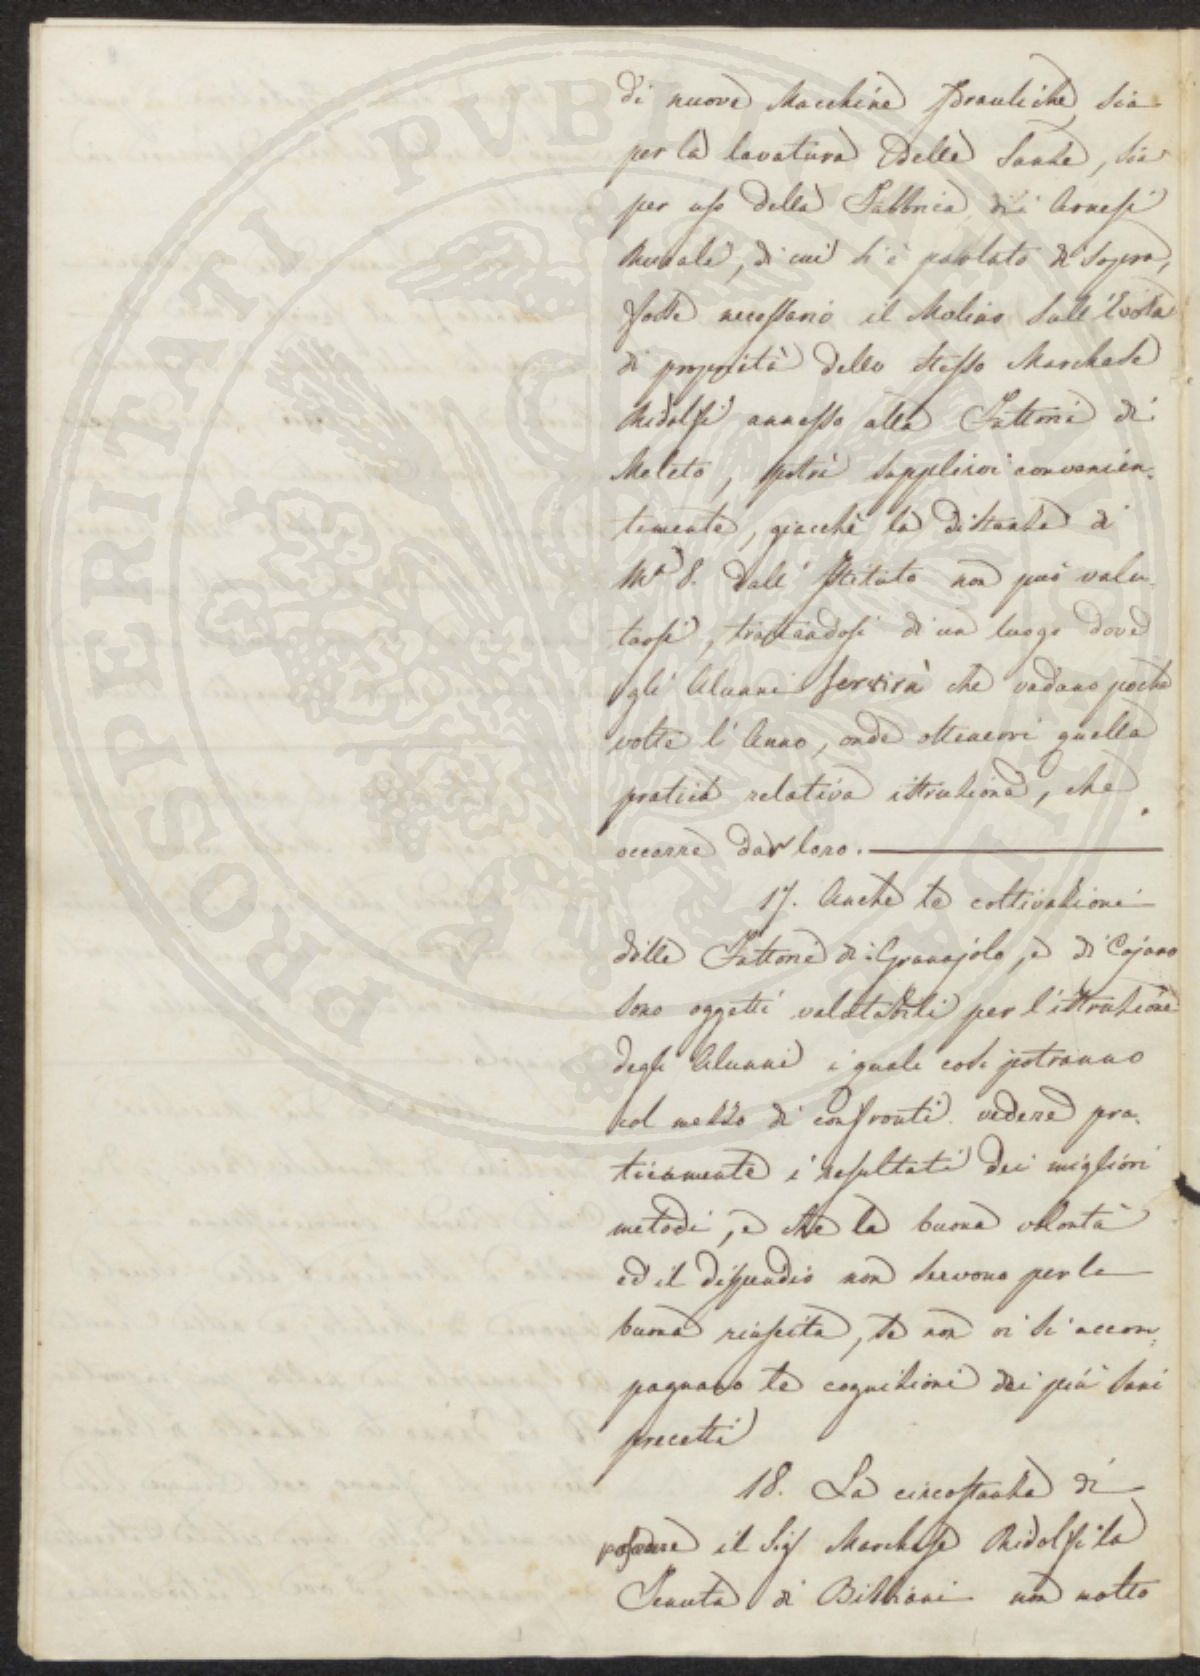 di nuove Macchine Idrauliche, sia
per la lavatura delle Sanse, sia
per uso della Fabbrica di Arnesi
Rurali, di cui si è parlato di sopra,
fosse necessario il Molino sull'Evola
di proprietà dello stesso Marchese
Ridolfi annesso alla Fattoria di
Meleto, potrà supplirvi convenien-
temente, giacchè la distanza di
Ma 8. dall'Istituto non può valu-
tarsi, trattandosi di un luogo dove
gli Alunni servirà che vadano poche
volte l'Anno, onde ottenervi quella
pratica relativa istruzione, che
occorre dar loro.
17. Anche le coltivazioni
delle Fattorie di Granajolo, e di Cojano
sono oggetti valutabili per l'istruzione
degli Alunni i quali così potranno
col mezzo di confronti vedere pra-
ticamente i resultati dei migliori
metodi, e che la buona volontà
ed il dispendio non servono per la
buona riuscita, se non vi si accom-
pagnano le cognizioni dei più sani
precetti
18. La circostanza di
possedere il Sig Marchese Ridolfi la
Tenuta di Bibbiani non molto
PROSPERITATI PVBLICAE AVGENDAE